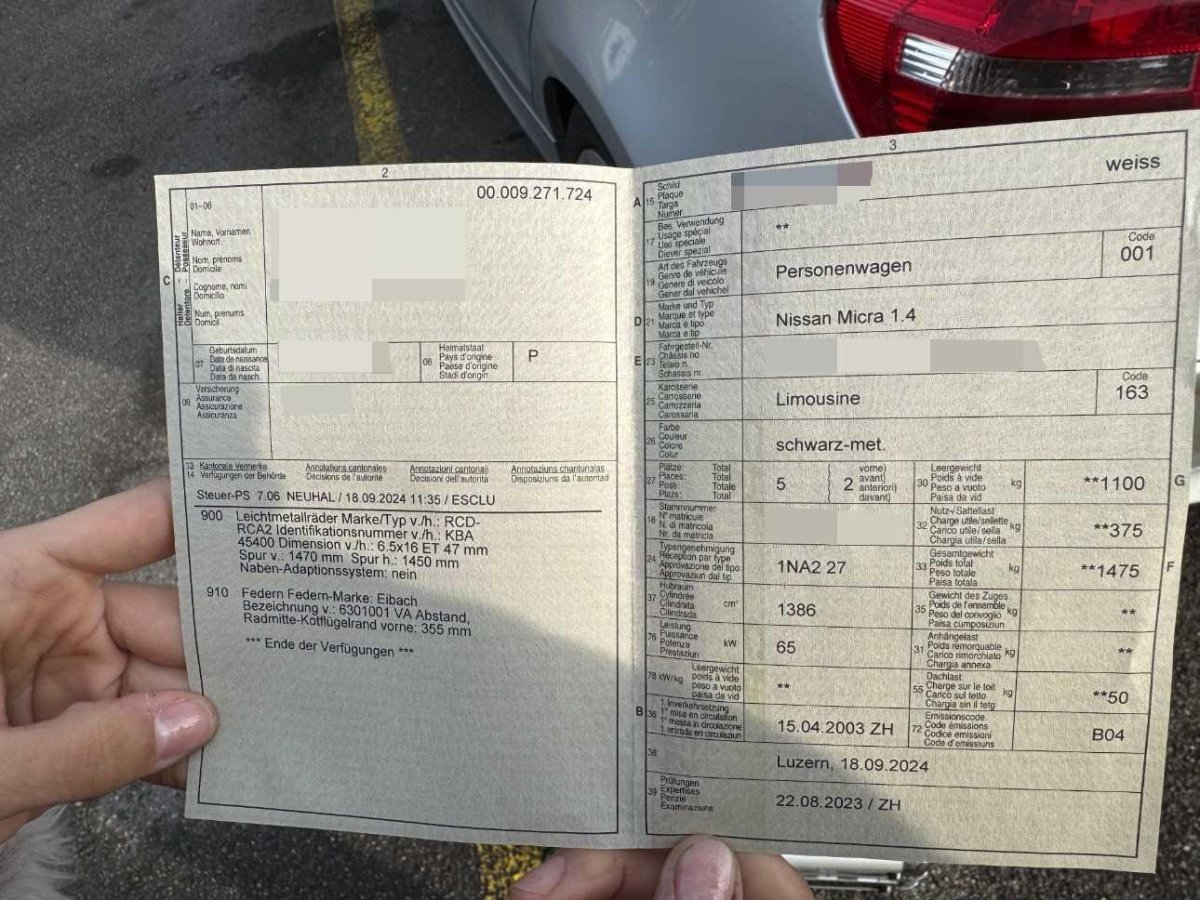 2
00.009.271.724
01–06
C
Halter Détenteur
Detentore - Possesseur
Name, Vornamen
Wohnort
Nom, prénoms
Domicile
Cognome, nomi
Domicilio
Num, prenums
Domicil
07
Geburtsdatum
Date de naissance
Data di nascita
Data da nasch.
08
Heimatstaat
Pays d'origine
Paese d'origine
Stadi d'origin
P
09
Versicherung
Assurance
Assicurazione
Assicuranza
13 Kantonale Vermerke
14 Verfügungen der Behörde
Annotations cantonales
Décisions de l'autorité
Annotazioni cantonali
Decisioni dell'autorità
Annotaziuns chantunalas
Disposiziuns da l'autoritad
Steuer-PS 7.06 NEUHAL / 18.09.2024 11:35 / ESCLU
900 Leichtmetallräder Marke/Typ v./h.: RCD-
RCA2 Identifikationsnummer v./h.: KBA
45400 Dimension v./h.: 6.5x16 ET 47 mm
Spur v.: 1470 mm Spur h.: 1450 mm
Naben-Adaptionssystem: nein
910 Federn Federn-Marke: Eibach
Bezeichnung v.: 6301001 VA Abstand,
Radmitte-Kotflügelrand vorne: 355 mm
*** Ende der Verfügungen ***
3
A 15
Schild
Plaque
Targa
Numer
weiss
17
Bes. Verwendung
Usage spécial
Uso speciale
Diever spezial
**
19
Art des Fahrzeugs
Genre de véhicule
Genere di veicolo
Gener dal vehichel
Personenwagen
Code
001
D 21
Marke und Typ
Marque et type
Marca e tipo
Marca e tip
Nissan Micra 1.4
E 23
Fahrgestell-Nr.
Châssis no
Telaio n.
Schassis nr.
25
Karosserie
Carrosserie
Carrozzeria
Carossaria
Limousine
Code
163
26
Farbe
Couleur
Colore
Colur
schwarz-met.
27
Plätze: Total
Places: Total
Posti: Totale
Plazs: Total
5
2
vorne)
avant)
anteriori)
davant)
30
Leergewicht
Poids à vide
Peso a vuoto
Paisa da vid
kg
**1100
G
18
Stammnummer
N° matricule
N. di matricola
Nr. da matricla
32
Nutz-/Sattellast
Charge utile/sellette
Carico utile/sella
Chargia utila/sella
kg
**375
24
Typengenehmigung
Réception par type
Approvazione del tipo
Approvaziun dal tip
1NA2 27
33
Gesamtgewicht
Poids total
Peso totale
Paisa totala
kg
**1475
F
37
Hubraum
Cylindrée
Cilindrata
Cilindrada
cm³
1386
35
Gewicht des Zuges
Poids de l'ensemble
Peso del convoglio
Paisa cumposiziun
kg
**
76
Leistung
Puissance
Potenza
Prestaziun
kW
65
31
Anhängelast
Poids remorquable
Carico rimorchiato
Chargia annexa
kg
**
78 kW/kg
Leergewicht
poids à vide
peso a vuoto
paisa da vid
**
55
Dachlast
Charge sur le toit
Carico sul tetto
Chargia sin il tetg
kg
**50
B 36
1. Inverkehrsetzung
1re mise en circulation
1a messa in circolazione
1. entrada en circulaziun
15.04.2003 ZH
72
Emissionscode
Code émissions
Codice emissioni
Code d'emissiuns
B04
38
Luzern, 18.09.2024
39
Prüfungen
Expertises
Perizie
Examinaziuns
22.08.2023 / ZH